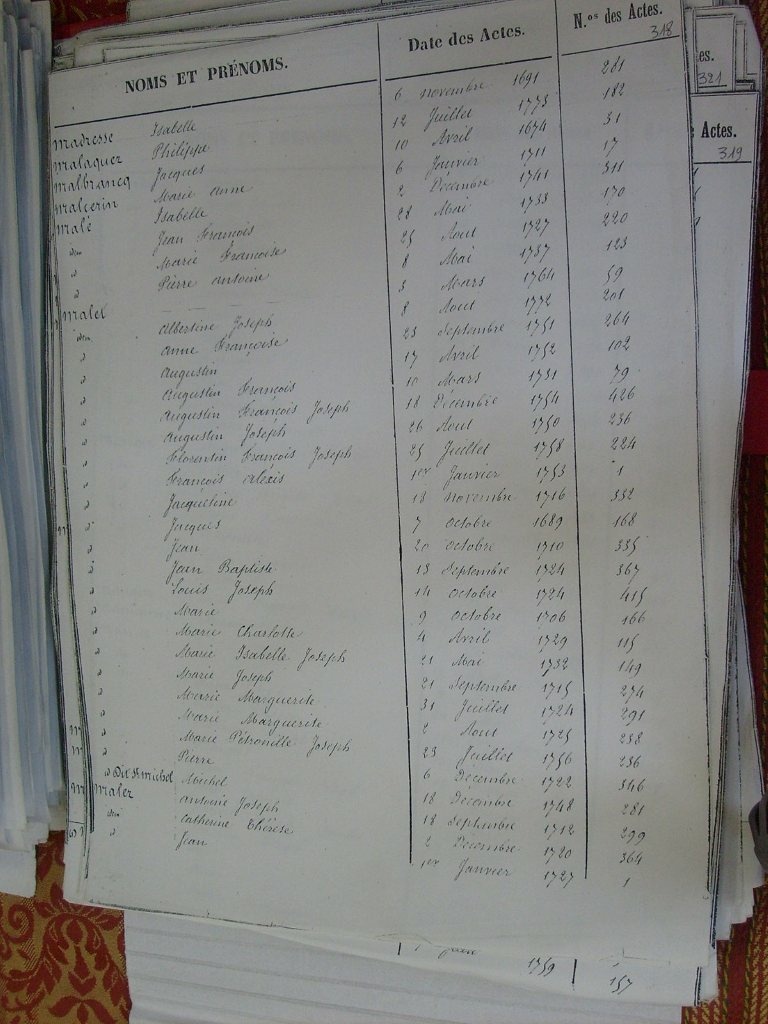 NOMS ET PRÉNOMS. Date des Actes. N.os des Actes.
318
Madresse Isabelle 6 novembre 1691 281
Malaquez Philippe 12 Juillet 1773 182
Malbrancq Jacques 10 Avril 1674 31
Malcerin Marie anne 6 Janvier 1711 17
Malé Isabelle 2 Décembre 1741 311
idem Jean François 28 Mai 1733 170
" Marie Françoise 25 Aout 1727 220
" Pierre antoine 8 Mai 1737 123
Malet — — 3 Mars 1764 59
idem Albertine Joseph 8 Aout 1772 201
" Anne Françoise 23 Septembre 1751 264
" Augustin 17 Avril 1752 102
" Augustin François 10 Mars 1731 79
" Augustin François Joseph 18 Décembre 1754 426
" Augustin Joseph 26 Aout 1750 236
" Florentin François Joseph 25 Juillet 1758 224
" François Alexis 1er Janvier 1753 1
" Jacqueline 18 novembre 1716 332
" Jacques 7 octobre 1689 168
" Jean 20 octobre 1710 335
" Jean Baptiste 13 Septembre 1724 367
" Louis Joseph 14 octobre 1724 415
" Marie 9 octobre 1706 166
" Marie Charlotte 4 Avril 1729 115
" Marie Isabelle Joseph 21 Mai 1732 149
" Marie Joseph 21 Septembre 1715 274
" Marie Marguerite 31 Juillet 1724 291
" Marie Marguerite 2 Aout 1725 238
" Marie Pétronille Joseph 23 Juillet 1756 236
" Pierre 6 Décembre 1722 346
" Dit St michel Michel 18 Décembre 1748 281
Malez antoine Joseph 18 Septembre 1712 299
idem catherine Thérèse 2 Décembre 1720 364
" Jean 1er Janvier 1727 1
1759
157
es.
321
Actes.
319